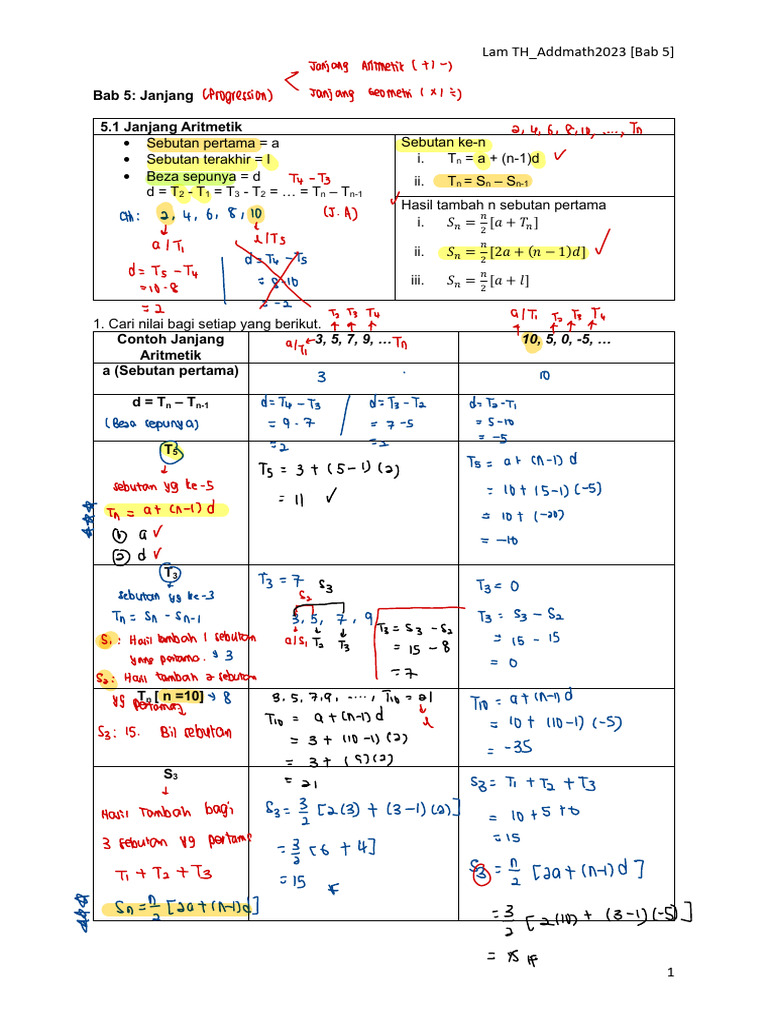 Lam TH_Addmath2023 [Bab 5]
Janjang Aritmetik (+/-)
Bab 5: Janjang (Progression)
Janjang Geometri (×/÷)
5.1 Janjang Aritmetik
• Sebutan pertama = a
• Sebutan terakhir = l
• Beza sepunya = d
T4 - T3
d = T2 - T1 = T3 - T2 = … = Tn – Tn-1
Cth: 2, 4, 6, 8, 10 (J.A)
a/T1
l/T5
d = T5 - T4
= 10 - 8
= 2
d = T4 - T5
= 8-10
= -2
2, 4, 6, 8, 10, ...., Tn
Sebutan ke-n
i. Tn = a + (n-1)d ✓
ii. Tn = Sn – Sn-1
Hasil tambah n sebutan pertama
i. Sn = n/2 [a + Tn]
ii. Sn = n/2 [2a + (n − 1)d] ✓
iii. Sn = n/2 [a + l]
1. Cari nilai bagi setiap yang berikut.
T2 T3 T4
a/T1 T2 T3 T4
Contoh Janjang Aritmetik
a/T1 ← 3, 5, 7, 9, … Tn
10, 5, 0, -5, …
a (Sebutan pertama)
3
10
d = Tn – Tn-1
(Beza sepunya)
d = T4 - T3
= 9 - 7
= 2
d = T3 - T2
= 7 - 5
= 2
d = T2 - T1
= 5 - 10
= -5
T5
↓
sebutan yg ke-5
Tn = a + (n-1) d
① a ✓
② d ✓
T5 = 3 + (5-1)(2)
= 11 ✓
T5 = a + (n-1) d
= 10 + (5-1)(-5)
= 10 + (-20)
= -10
T3
sebutan yg ke-3
Tn = Sn - Sn-1
S1: Hasil tambah 1 sebutan
yang pertama. → 3
S2: Hasil tambah 2 sebutan
T3 = 7
S3
S2
3, 5, 7, 9
a/S1 T2 T3
T3 = S3 - S2
= 15 - 8
= 7
T3 = 0
T3 = S3 - S2
= 15 - 15
= 0
Tn [ n =10] → 8
yg pertama
S3: 15. Bil sebutan
3, 5, 7, 9, ...., T10 = 21
l
T10 = a + (n-1) d
= 3 + (10-1)(2)
= 3 + (9)(2)
= 21
T10 = a + (n-1) d
= 10 + (10-1)(-5)
= -35
S3
↓
Hasil tambah bagi
3 sebutan yg pertama
T1 + T2 + T3
Sn = n/2 [2a + (n-1)d]
S3 = 3/2 [2(3) + (3-1)(2)]
= 3/2 [6 + 4]
= 15
S3 = T1 + T2 + T3
= 10 + 5 + 0
= 15
S3 = n/2 [2a + (n-1) d]
= 3/2 [2(10) + (3-1)(-5)]
= 15
1